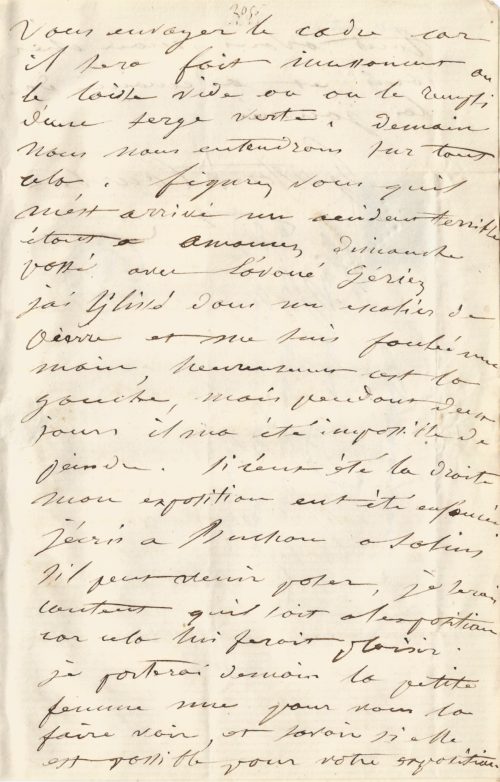 308
Vous envoyer le cadre car
il sera fait incessament ou
le laisse vide ou on le rempli
d'une serge verte. demain
nous nous entendrons sur tout
cela. figurez vous quil
m'est arrivé un accident terrible
étant a dimanche
passé avec
j'ai glissé dans un escalier de
pierre et me suis foulé une
main, heureusement c'est la
gauche, mais pendant deux
jours il ma été impossible de
peindre. si c'eut été la droite
mon exposition eut été enfoncée
J'écris a Buchon a Salins
S'il peut venir poser, je serai
content quil soit a l'exposition
car cela lui feroit plaisir.
je porterai demain la petite
femme nue pour vous la
faire voir, et savoir si elle
est possible pour votre exposition